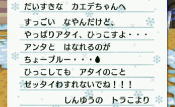 だいすきな　カエデちゃんへ
すっごい　なやんだけど、
やっぱりアタイ、ひっこすよ・・・
アンタと　はなれるのが
ちょーブルー・・・💧
ひっこしても　アタイのこと
ゼッタイわすれないでね！！！
しんゆうの　トラこより